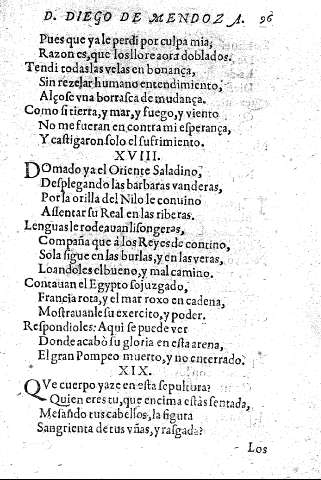 D. DIEGO DE MENDOZA. 96
Pues que ya le perdi por culpa mia,
Razon es, que los llore aora doblados.
Tendi todas las velas en bonança,
Sin rezelar humano entendimiento,
Alçose vna borrasca de mudança.
Como si tierra, y mar, y fuego, y viento
No me fueran en contra mi esperança,
Y castigaron solo el sufrimiento.
XVIII.
DOmado ya el Oriente Saladino,
Desplegando las barbaras vanderas,
Por la orilla del Nilo le conuino
Assentar su Real en las riberas.
Lenguas le rodeauan lisongeras,
Compaña que á los Reyes de contino,
Sola sigue en las burlas, y en las veras,
Loandoles el bueno, y mal camino.
Contauan el Egypto sojuzgado,
Francia rota, y el mar roxo en cadena,
Mostrauanle su exercito, y poder.
Respondioles: Aqui se puede ver
Donde acabò su gloria en esta arena,
El gran Pompeo muerto, y no enterrado.
XIX.
QVe cuerpo yaze en esta sepultura?
Quien eres tu, que encima estàs sentada,
Mesando tus cabellos, la figura
Sangrienta de tus vñas, y rasgada?
Los